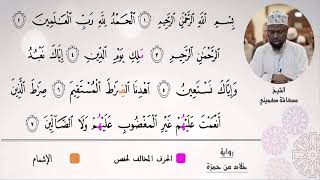 بِسْمِ ٱللَّهِ ٱلرَّحْمَٰنِ ٱلرَّحِيمِ ١ ٱلْحَمْدُ لِلَّهِ رَبِّ ٱلْعَٰلَمِينَ ٢
ٱلرَّحْمَٰنِ ٱلرَّحِيمِ ٣ مَلِكِ يَوْمِ ٱلدِّينِ ٤ إِيَّاكَ نَعْبُدُ
وَإِيَّاكَ نَسْتَعِينُ ٥ ٱهْدِنَا ٱلصِّرَٰطَ ٱلْمُسْتَقِيمَ ٦ صِرَٰطَ ٱلَّذِينَ
أَنْعَمْتَ عَلَيْهُمْ غَيْرِ ٱلْمَغْضُوبِ عَلَيْهُمْ وَلَا ٱلضَّآلِّينَ ٧
الشيخ
كميني
رواية
خلاد عن حمزة
الحرف المخالف لحفص
الإشمام